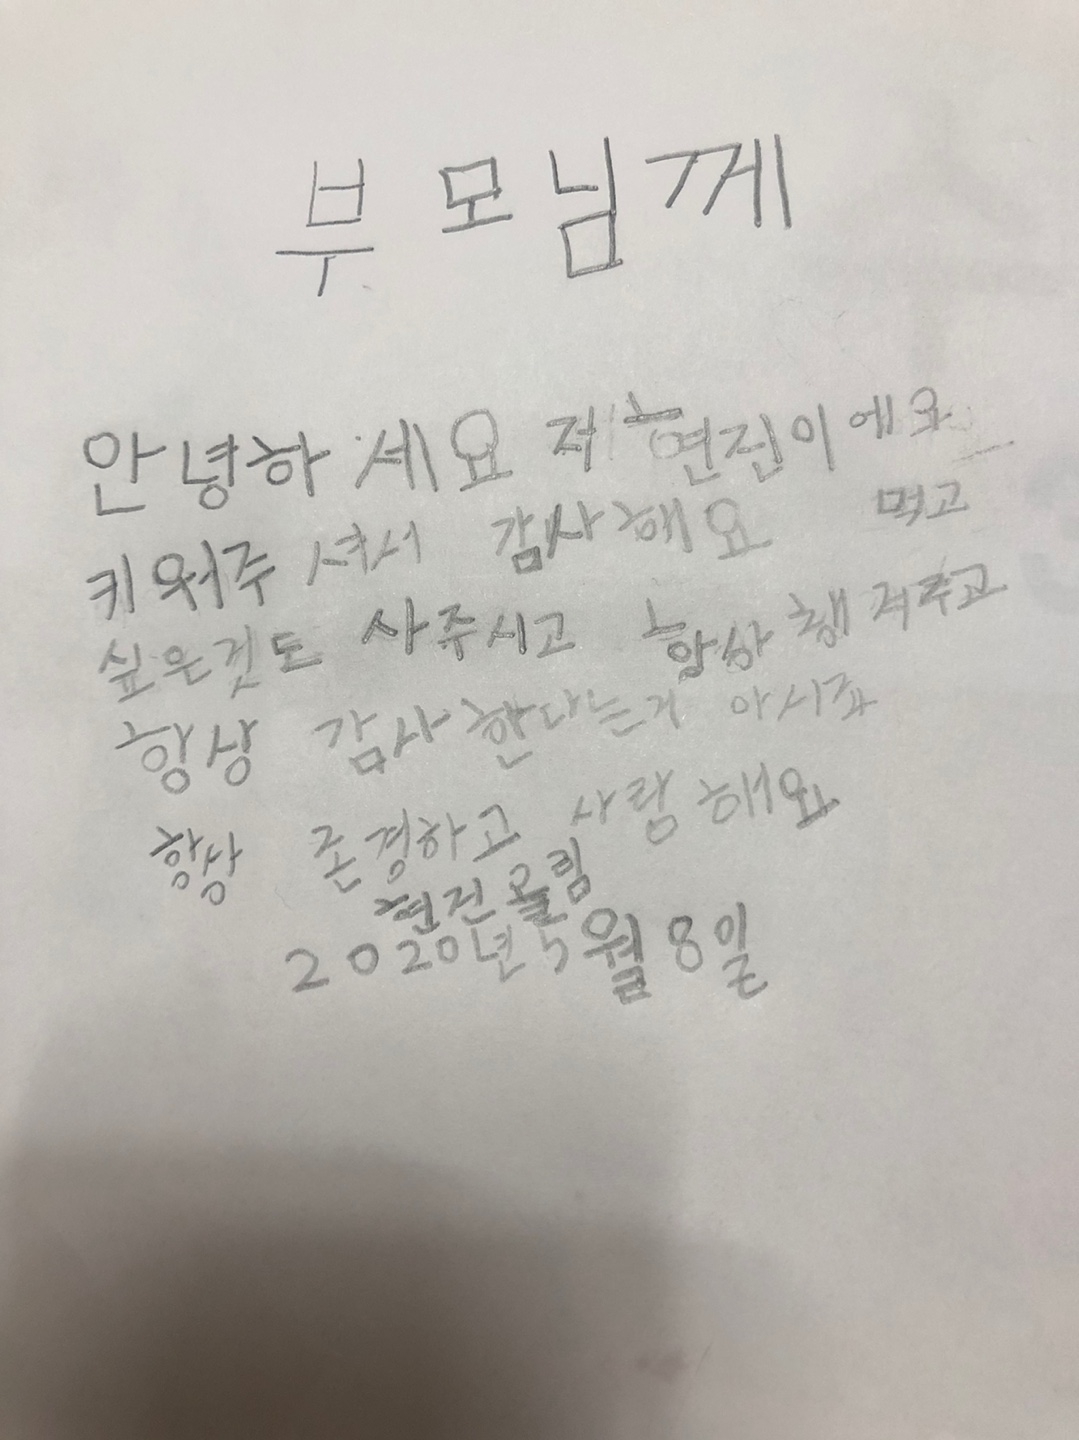 부모님께
안녕하세요 저 현진이에요
키워주셔서 감사해요 먹고
싶은것도 사주시고 항상
항상 감사한다는거 아시죠
항상 존경하고 사랑해요
현진 올림
2020년 5월 8일